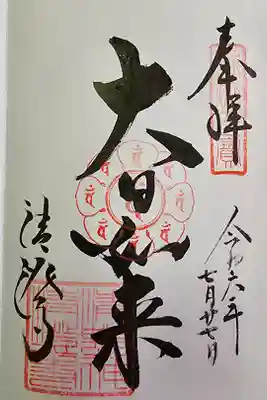 奉拝
令和六年
七月廿七日
大日如来
清瀧寺